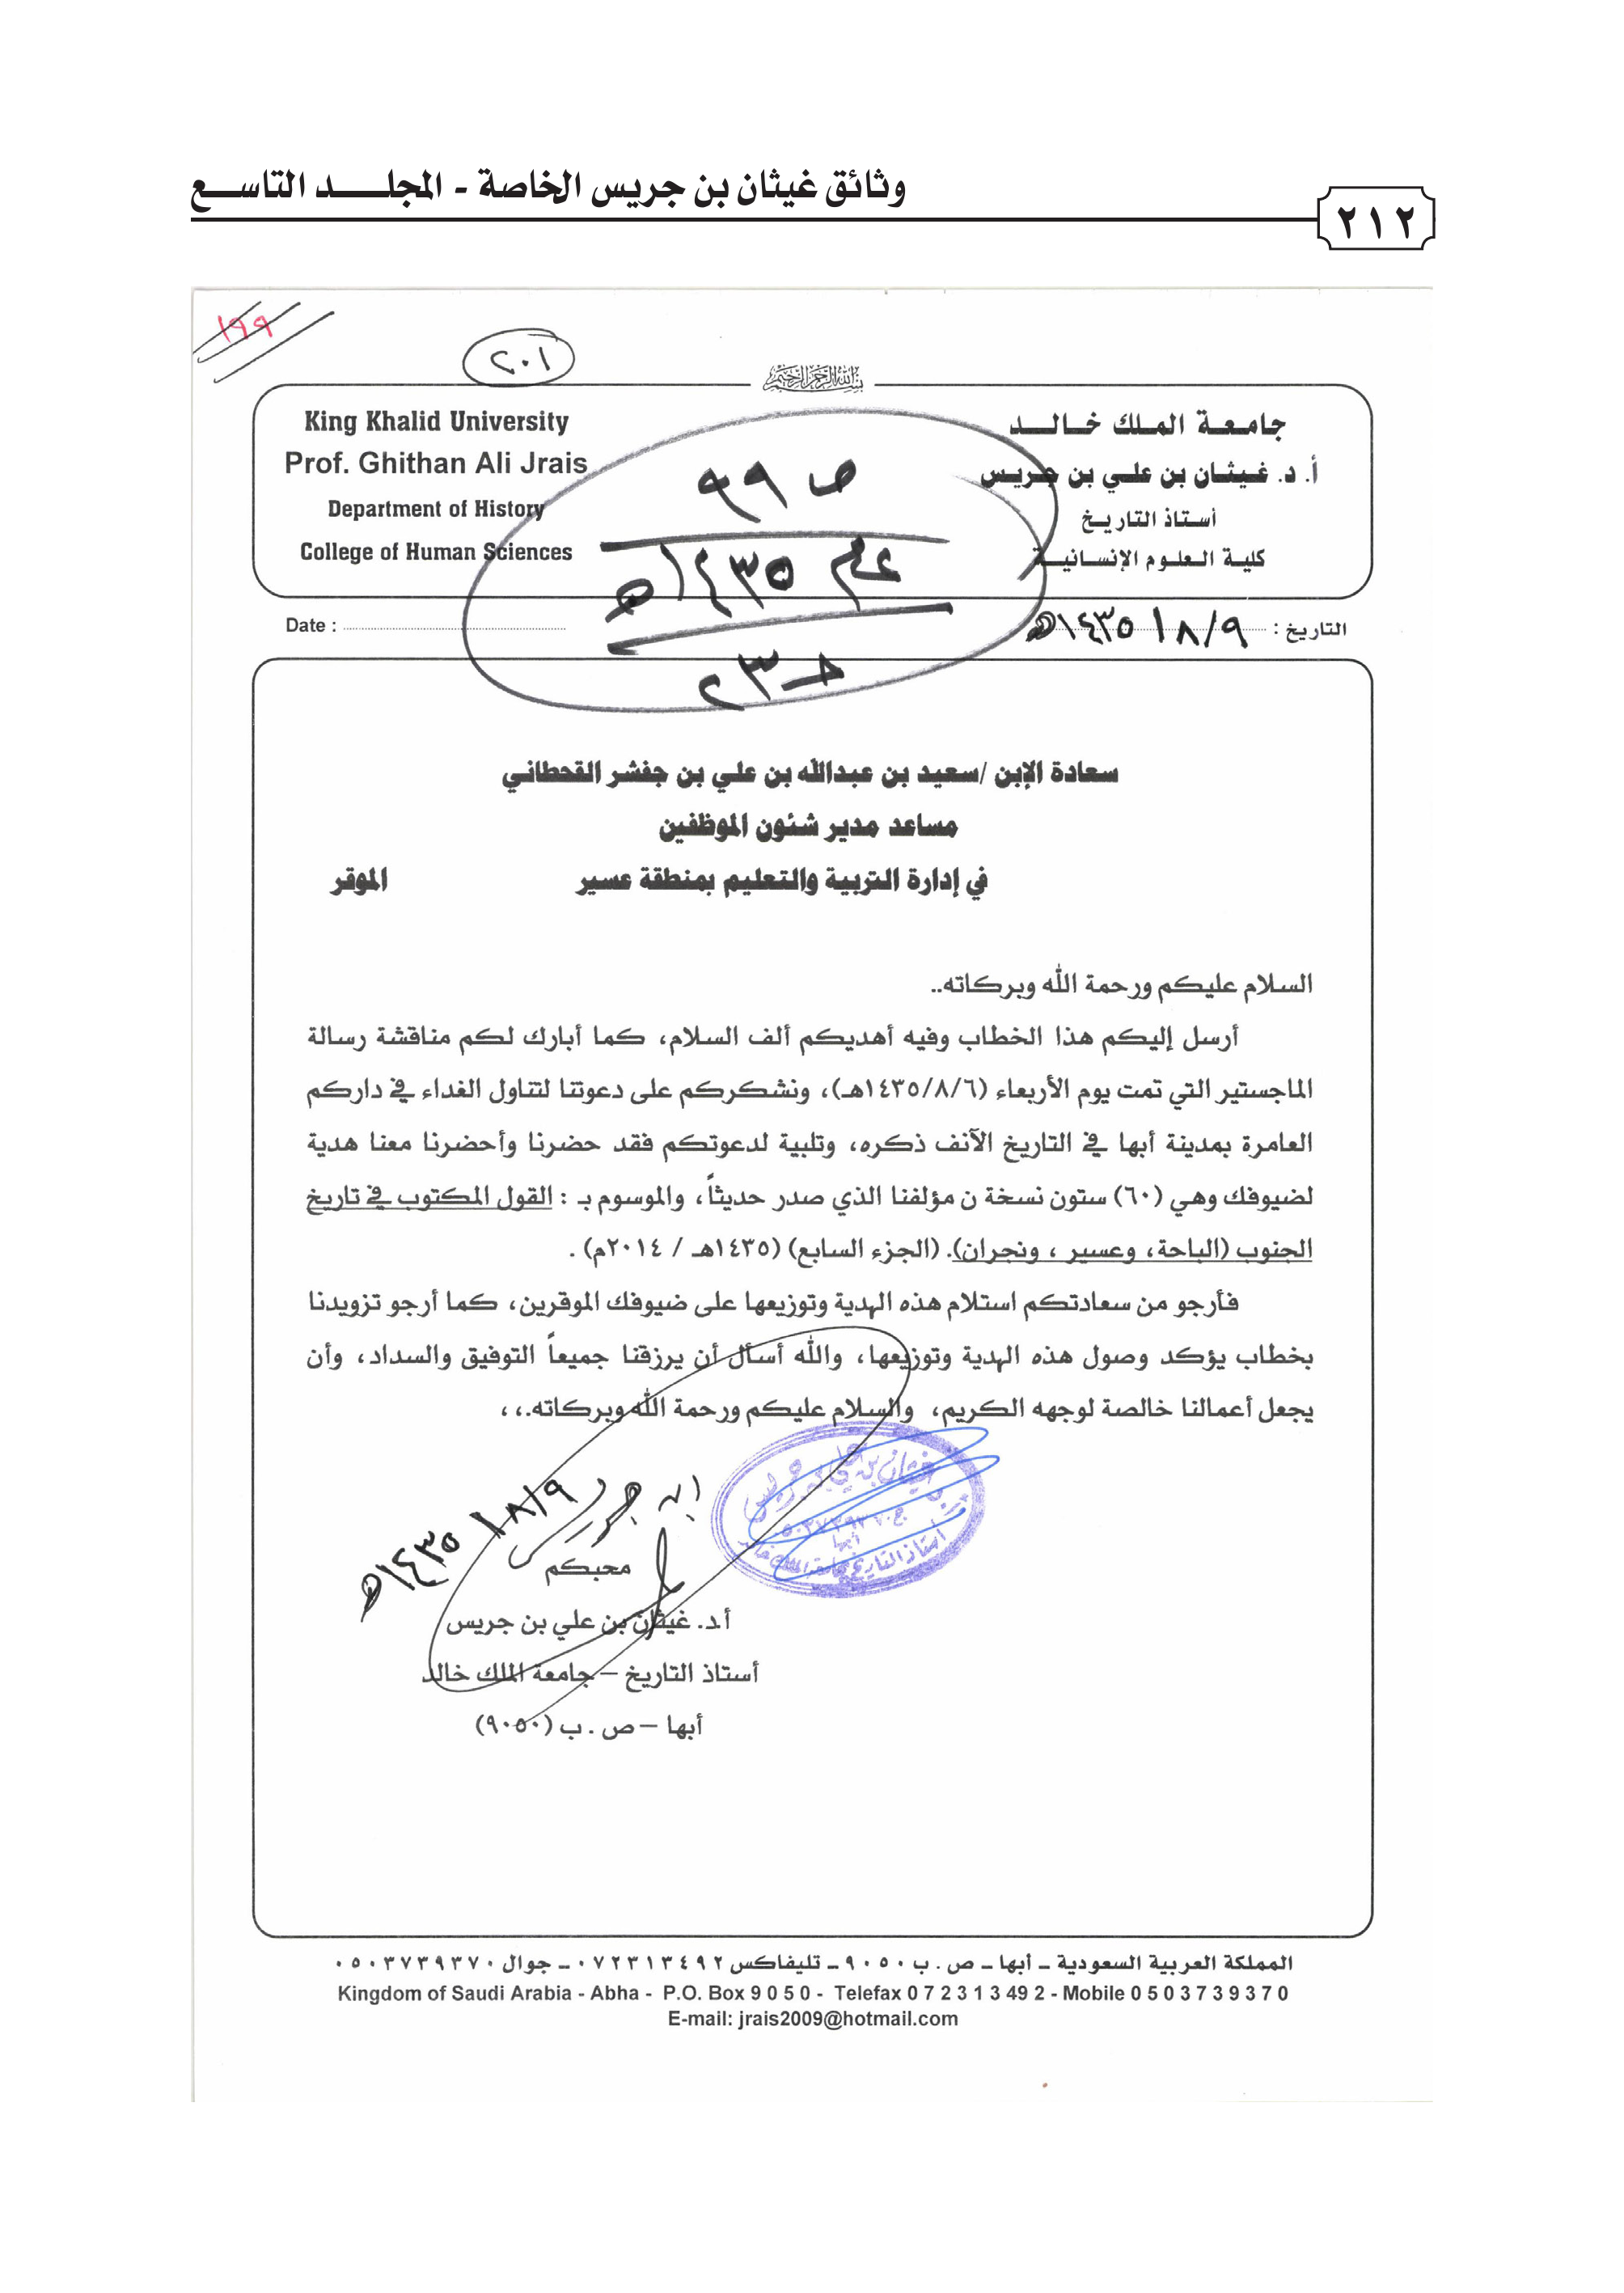 وثائق غيثان بن جريس الخاصة - المجلد التاسع
٢١٢
١٩٩
٢٠١
بسم الله الرحمن الرحيم
جامعة الملك خالد
أ. د. غيثان بن علي بن جريس
أستاذ التاريخ
كلية العلوم الإنسانية
King Khalid University
Prof. Ghithan Ali Jrais
Department of History
College of Human Sciences
ص ٩٩
عام ١٤٣٥هـ
التاريخ : ٩/٨/١٤٣٥هـ
Date :
سعادة الإبن /سعيد بن عبدالله بن علي بن جفشر القحطاني
مساعد مدير شئون الموظفين
في إدارة التربية والتعليم بمنطقة عسير الموقر
السلام عليكم ورحمة الله وبركاته..
أرسل إليكم هذا الخطاب وفيه أهديكم ألف السلام، كما أبارك لكم مناقشة رسالة
الماجستير التي تمت يوم الأربعاء (١٤٣٥/٨/٦هـ)، ونشكركم على دعوتنا لتناول الغداء في داركم
العامرة بمدينة أبها في التاريخ الآنف ذكره، وتلبية لدعوتكم فقد حضرنا وأحضرنا معنا هدية
لضيوفك وهي (٦٠) ستون نسخة ن مؤلفنا الذي صدر حديثاً، والموسوم بـ : القول المكتوب في تاريخ
الجنوب (الباحة، وعسير ، ونجران). (الجزء السابع) (١٤٣٥هـ / ٢٠١٤م) .
فأرجو من سعادتكم استلام هذه الهدية وتوزيعها على ضيوفك الموقرين، كما أرجو تزويدنا
بخطاب يؤكد وصول هذه الهدية وتوزيعها، والله أسأل أن يرزقنا جميعاً التوفيق والسداد، وأن
يجعل أعمالنا خالصة لوجهه الكريم، والسلام عليكم ورحمة الله وبركاته.،،
أ.د غيثان بن علي بن جريس
ج. ٠٥٠٣٧٣٩٣٧٠
أبها
أستاذ التاريخ بجامعة الملك خالد
ابن جريس
٩/٨/١٤٣٥هـ
محبكم
أ.د. غيثان بن علي بن جريس
أستاذ التاريخ – جامعة الملك خالد
أبها – ص . ب (٩٠٥٠)
المملكة العربية السعودية – أبها – ص . ب ٩٠٥٠ – تليفاكس ٠٧٢٣١٣٤٩٢ – جوال ٠٥٠٣٧٣٩٣٧٠
Kingdom of Saudi Arabia - Abha - P.O. Box 9 0 5 0 - Telefax 0 7 2 3 1 3 49 2 - Mobile 0 5 0 3 7 3 9 3 7 0
E-mail: jrais2009@hotmail.com